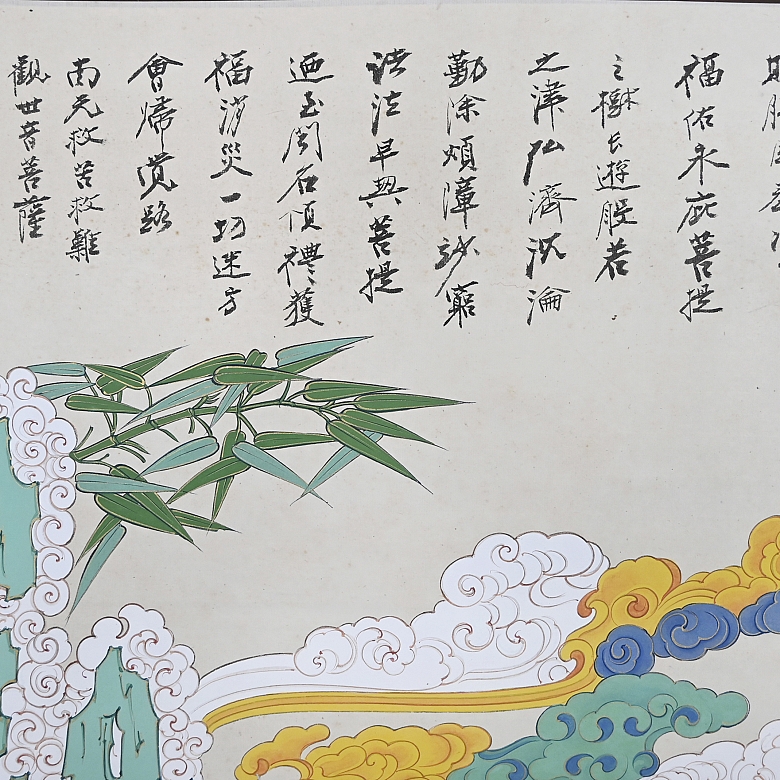 福佑永庇菩提
之樹長遊般若
之津弘濟沉淪
勤除煩障妙窮
諸法早契菩提
迺至閒名傾禮獲
福消災一切迷方
會歸覺路
南无救苦救難
觀世音菩薩